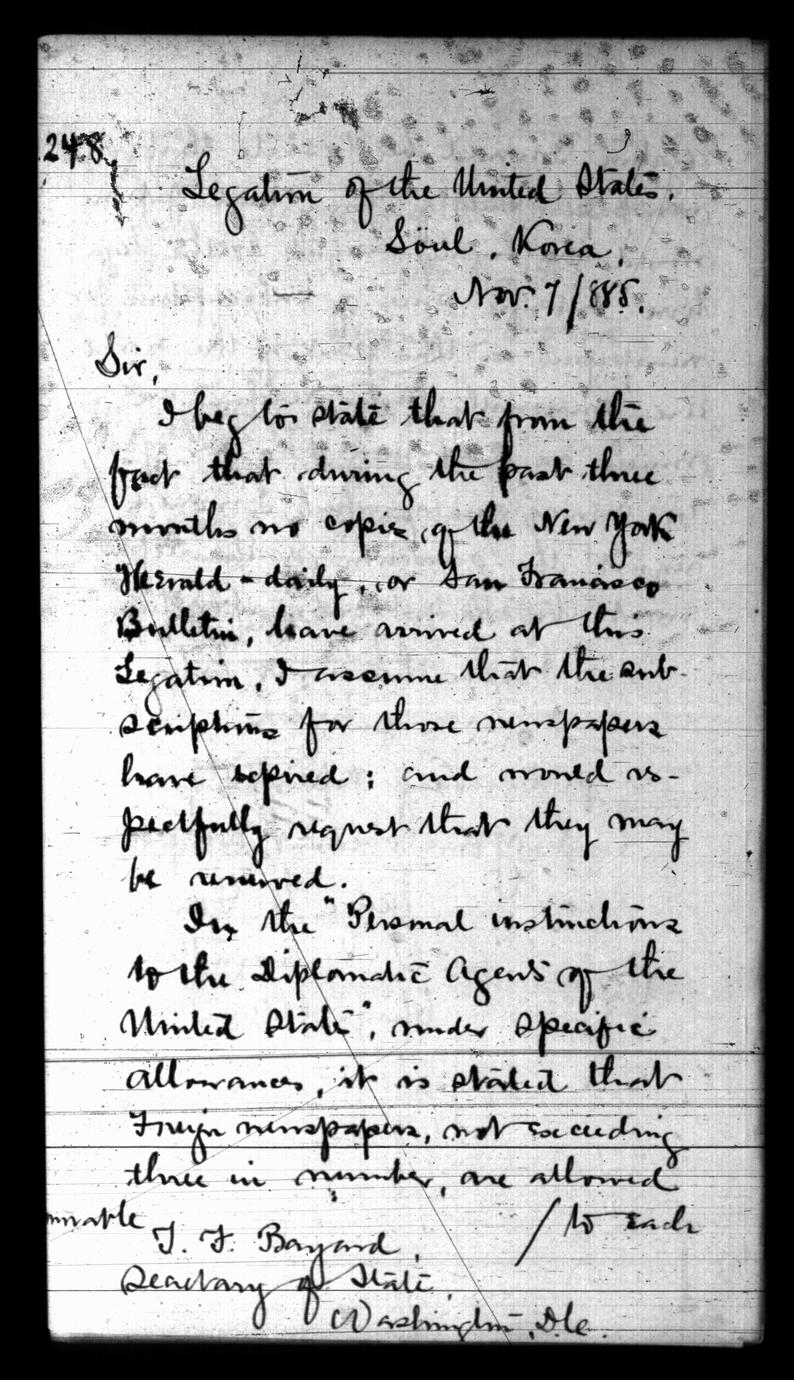 248
Legation of the United States.
Söul, Korea,
Nov. 7/885.
Sir,
I beg to state that from the
fact that during the past three
months no copies, of the New York
Herald - daily, or San Francisco
Bulletin, have arrived at this
Legation, I assume that the sub-
scriptions for those newspapers
have expired; and would res-
pectfully request that they may
be renewed.
In the "Personal instructions
to the Diplomatic Agents of the
United States", under specific
allowances, it is stated that
Foreign newspapers, not exceeding
three in number, are allowed
/ to each
T. F. Bayard,
Secretary of State,
Washington, D.C.